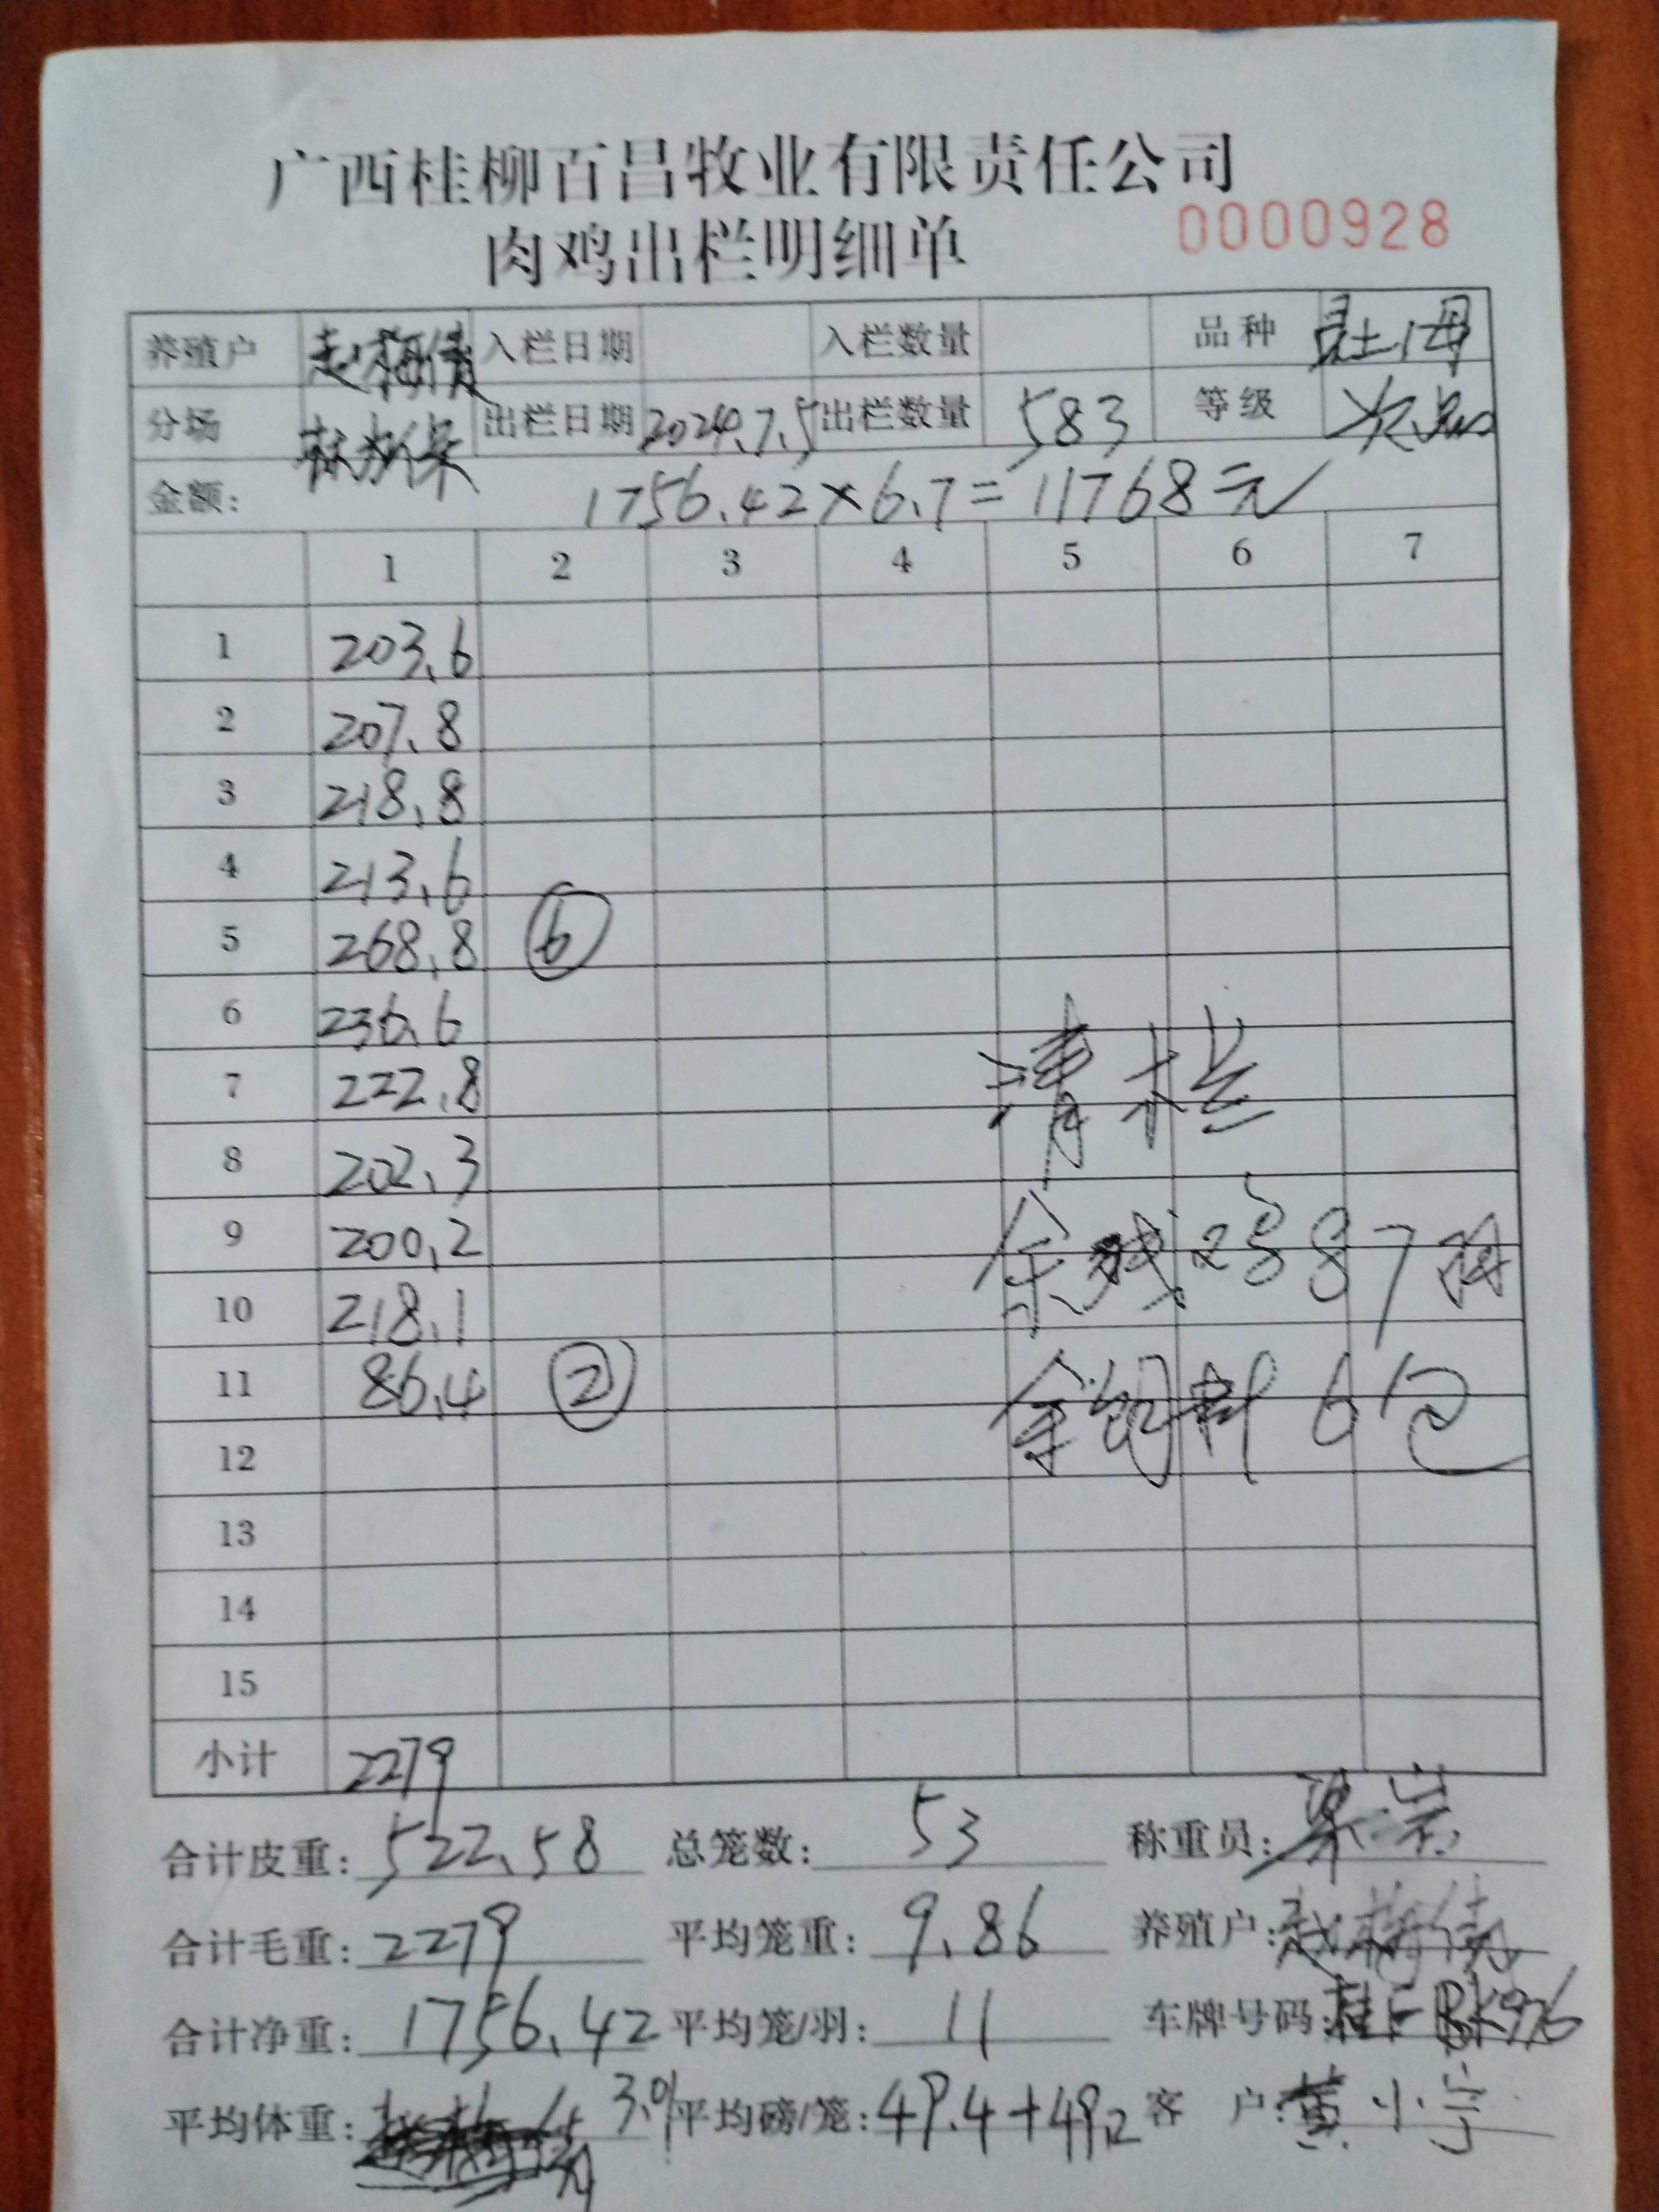 广西桂柳百昌牧业有限责任公司
肉鸡出栏明细单 0000928
养殖户 赵梅倩 入栏日期 入栏数量 品种 土1母
分场 出栏日期 2024.7.5 出栏数量 583 等级
金额: 1756.42×6.7=11768元
1 2 3 4 5 6 7
1 203.6
2 207.8
3 218.8
4 213.6
5 268.8 ⑥
6 236.6
7 222.8
清栏
8 202.3
9 200.2 余残2887羽
10 218.1
11 86.4 ② 余饲料6包
12
13
14
15
小计 2279
合计皮重: 522.58 总笼数: 53 称重员:
合计毛重: 2279 平均笼重: 9.86 养殖户: 赵梅倩
合计净重: 1756.42 平均笼/羽: 11 车牌号码: 桂F BK976
平均体重: 3.01 平均磅/笼: 49.4+49.2 客户: 黄小宁